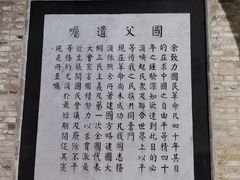 國父遺囑
余致力國民革命凡四十年其目
的在求中國之自由平等積四十
年之經驗深知欲達到此目的必
須喚起民眾及聯合世界上以平
等待我之民族共同奮鬥
現在革命尚未成功凡我同志務
須依照余所著建國方略建國大
綱三民主義及第一次全國代表
大會宣言繼續努力以求貫徹最
近主張開國民會議及廢除不平
等條約尤須於最短期間促其實
現是所至囑